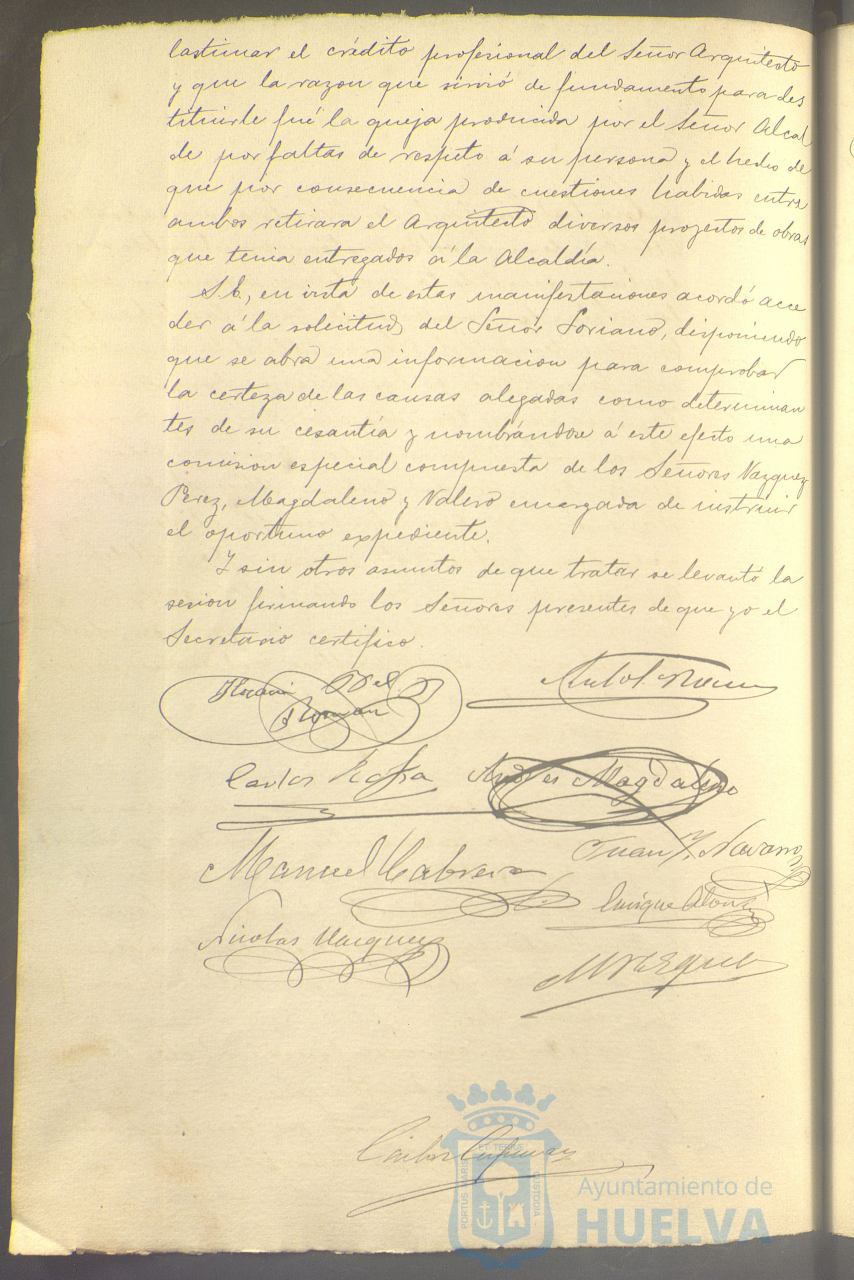 lastimar el crédito profesional del Señor Arquitecto
y que la razon que sirvió de fundamento para des
tituirle fué la queja producida por el Señor Alcal
de por faltas de respeto á su persona y el hecho de
que por consecuencia de cuestiones habidas entre
ambos retirara el Arquitecto diversos proyectos de obras
que tenia entregados á la Alcaldía.
S.E., en vista de estas manifestaciones acordó acce
der á la solicitud del Señor Soriano, disponiendo
que se abra una informacion para comprobar
la certeza de las causas alegadas como determinan
tes de su cesantía y nombrándose á este efecto una
comision especial compuesta de los Señores Vazquez
Perez, Magdaleno y Valero encargada de instruir
el oportuno expediente.
Y sin otros asuntos de que tratar se levantó la
sesion firmando los Señores presentes de que yo el
Secretario certifico.
Roman
Carlos Andres Magdaleno
Manuel Cabrera Juan Navarro
Enrique Alonso
Nicolas Vazquez
M Vazquez
PORTUS MARIS ET TERRAE CUSTODIA
Ayuntamiento de
HUELVA